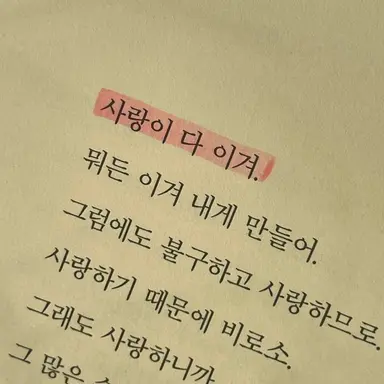 사랑이 다 이겨.
뭐든 이겨 내게 만들어.
그럼에도 불구하고 사랑하므로.
사랑하기 때문에 비로소.
그래도 사랑하니까
그 많은